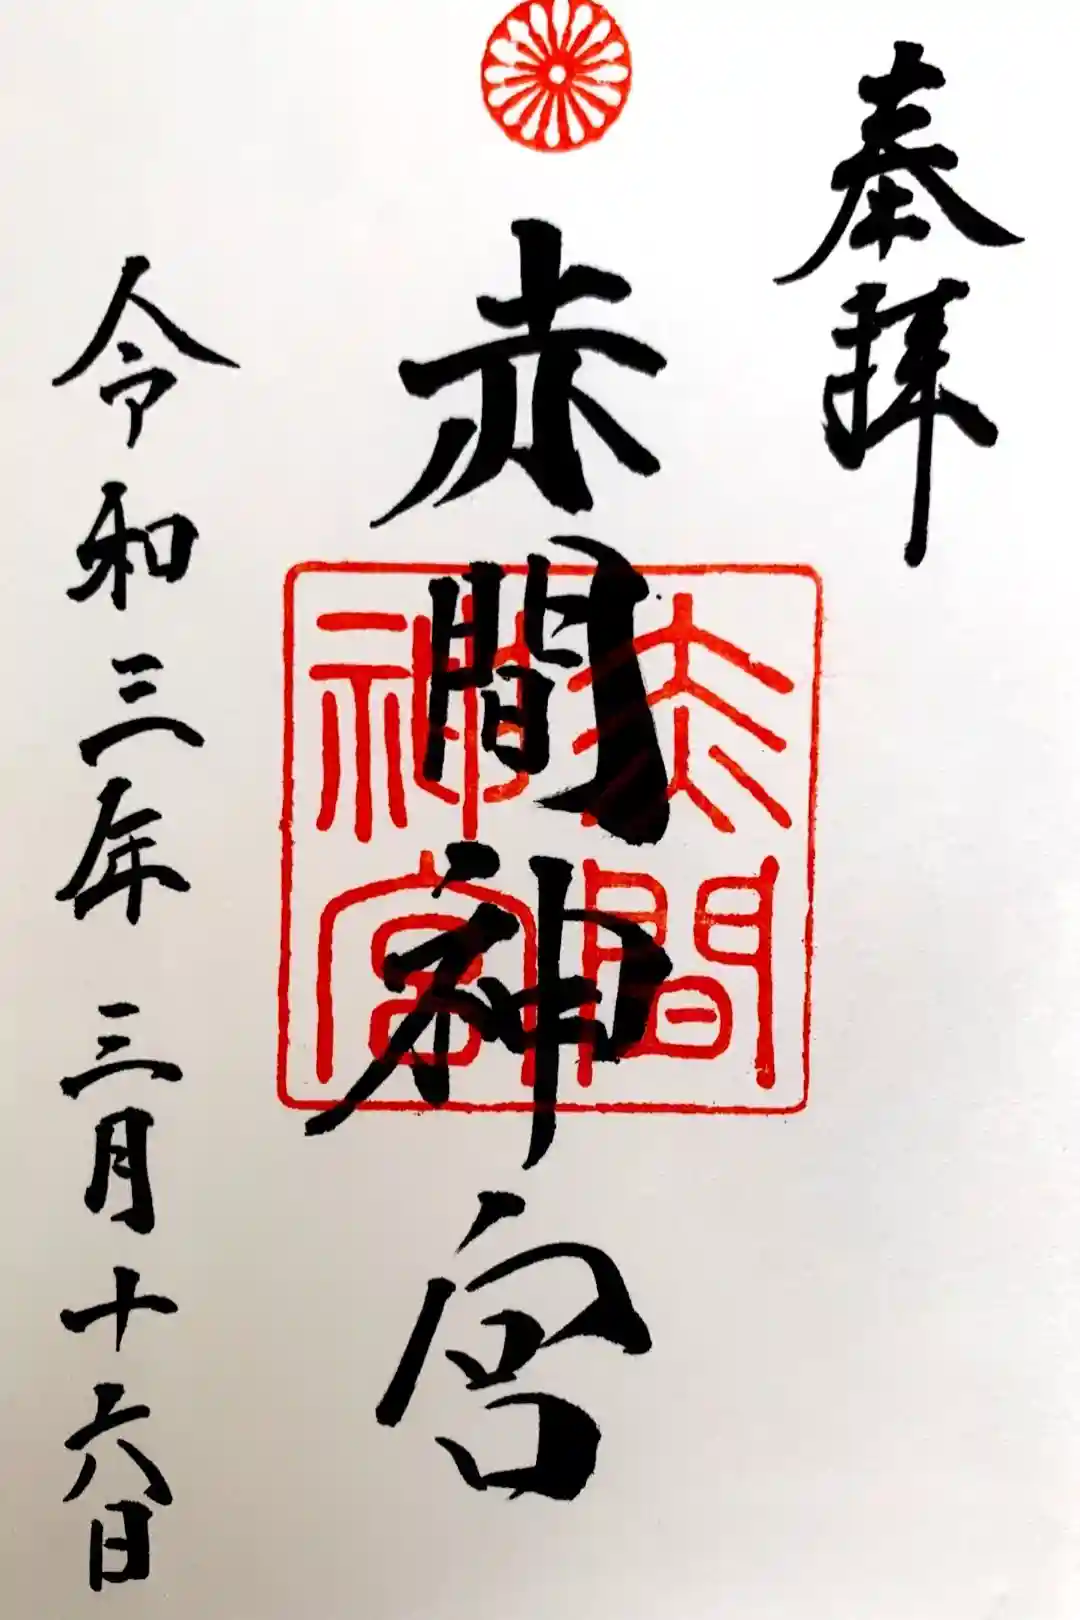 奉拝
赤間神宮
赤間
神宮
令和三年 三月十六日